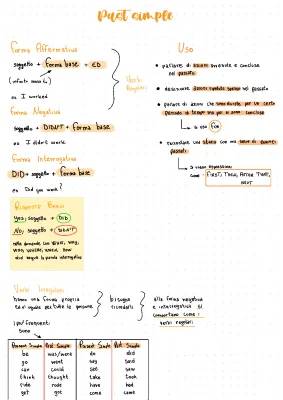 Past simple
Forma Affermativa
soggetto + forma base + ED
es I worked
Verbi
Regolari
Forma Negativa
soggetto + DIDN'T + forma base
es I didn't work
Forma Interrogativa
DID + soggetto + forma base
es Did you work?
Risposte Brevi
Yes, soggetto + DID
No, soggetto + DIDN'T
nelle domande con What, Why,
Who, Where, When, How
Uso
parlare di azioni avvenute e concluse
nel passato.
descrivere azioni ripetute spesso nel passato
parlare di azioni che sono durate per un certo
periodo di tempo ma poi si sono concluse
si usa FOR
raccontare una storia con una serie di azioni
passate.
si usano espressioni
come: FIRST, THEN, AFTER THAT,
NEXT
Verbi Irregolari
hanno una forma propria
ed è uguale per tutte le persone
bisogna
impararli
alla forma negativa
e interrogativa si
comportano come i
verbi regolari
i più frequenti
sono
Present Simple Past Simple Present Simple Past Simple
be was/were do did
go went say said
can could see saw
think thought take took
ride rode have had
get got come came